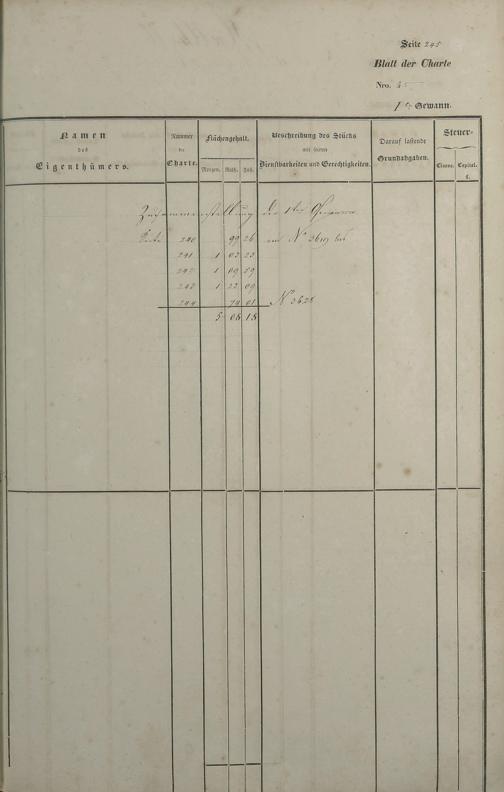 Seite 245
Blatt der Charte
Nro. 45
1te Gewann.
Namen des Eigenthümers.
Nummer der Charte.
Flächengehalt.
Morgen. Ruth. Fuß.
Beschreibung des Stücks mit seinen Dienstbarkeiten und Gerechtigkeiten.
Darauf lastende Grundabgaben.
Steuer-
Classe. Capital. f.
Zusammenstellung der 1ten Gewann
Seite 240 99 26 von No 3619 bis
241 1 02 23
242 1 09 59
243 1 23 09
244 74 01 No 3628
5 08 18